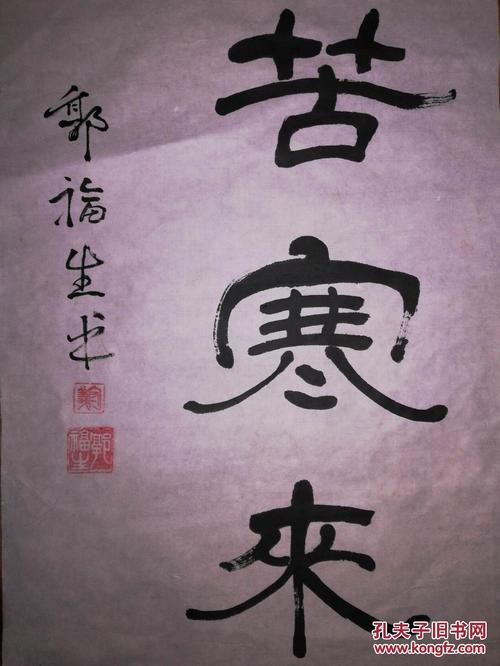 苦寒來
郭福生书
郭福生
孔夫子旧书网
www.kongfz.com